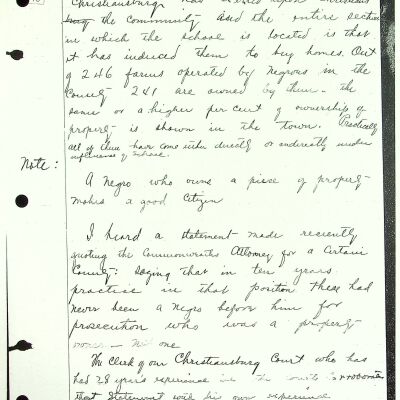 Christiansburg has
the Community and the entire section
in which the school is located is that
it has induced them to buy homes. Out
of 246 farms operated by Negroes in the
County 241 are owned by them - the
same or a higher per cent of ownership of
property is shown in the town. Practically
all of them have come either directly or indirectly under
influence of School.
Note:
A Negro who owns a piece of property
makes a good Citizen
I heard a statement made recently
quoting the Commonwealths Attorney for a Certain
County: saying that in ten years
practice in that position there had
never been a Negro before him for
prosecution who was a property
owner - Not one
The Clerk of our Christiansburg Court who has
had 28 years experience in the courts corroborates
that statement with his own experience